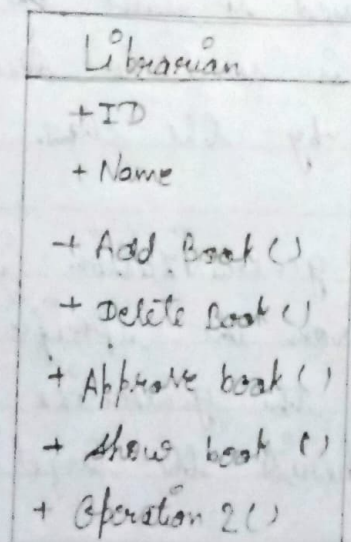 Librarian
+ ID
+ Name
+ Add Book ()
+ Delete Book ()
+ Approve book ()
+ Show book ()
+ Operation 2 ()